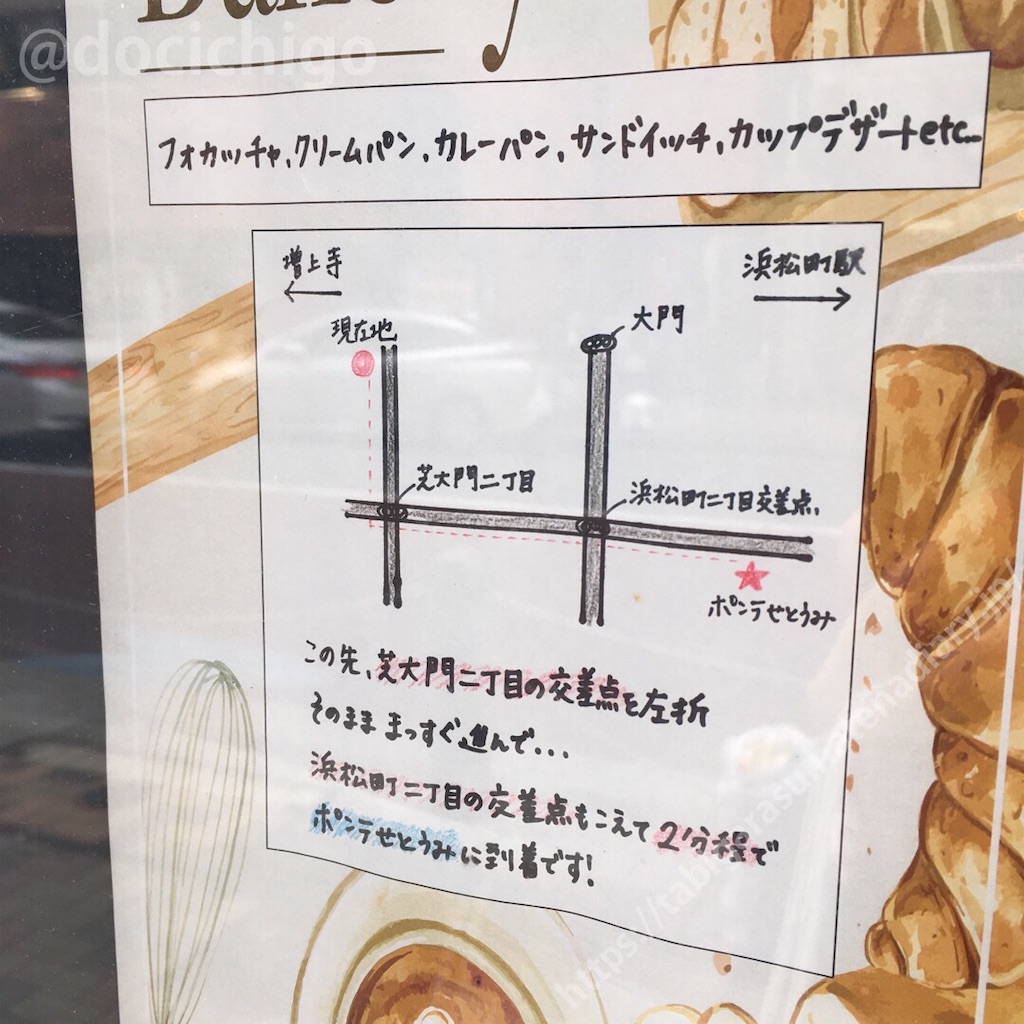 @docichigo
Bakery
フォカッチャ、クリームパン、カレーパン、サンドイッチ、カップデザートetc...
増上寺
←
浜松町駅
→
現在地
大門
芝大門二丁目
浜松町二丁目交差点
ポンテせとうみ
この先、芝大門二丁目の交差点を左折
そのまままっすぐ進んで...
浜松町二丁目の交差点もこえて2分程で
ポンテせとうみに到着です!